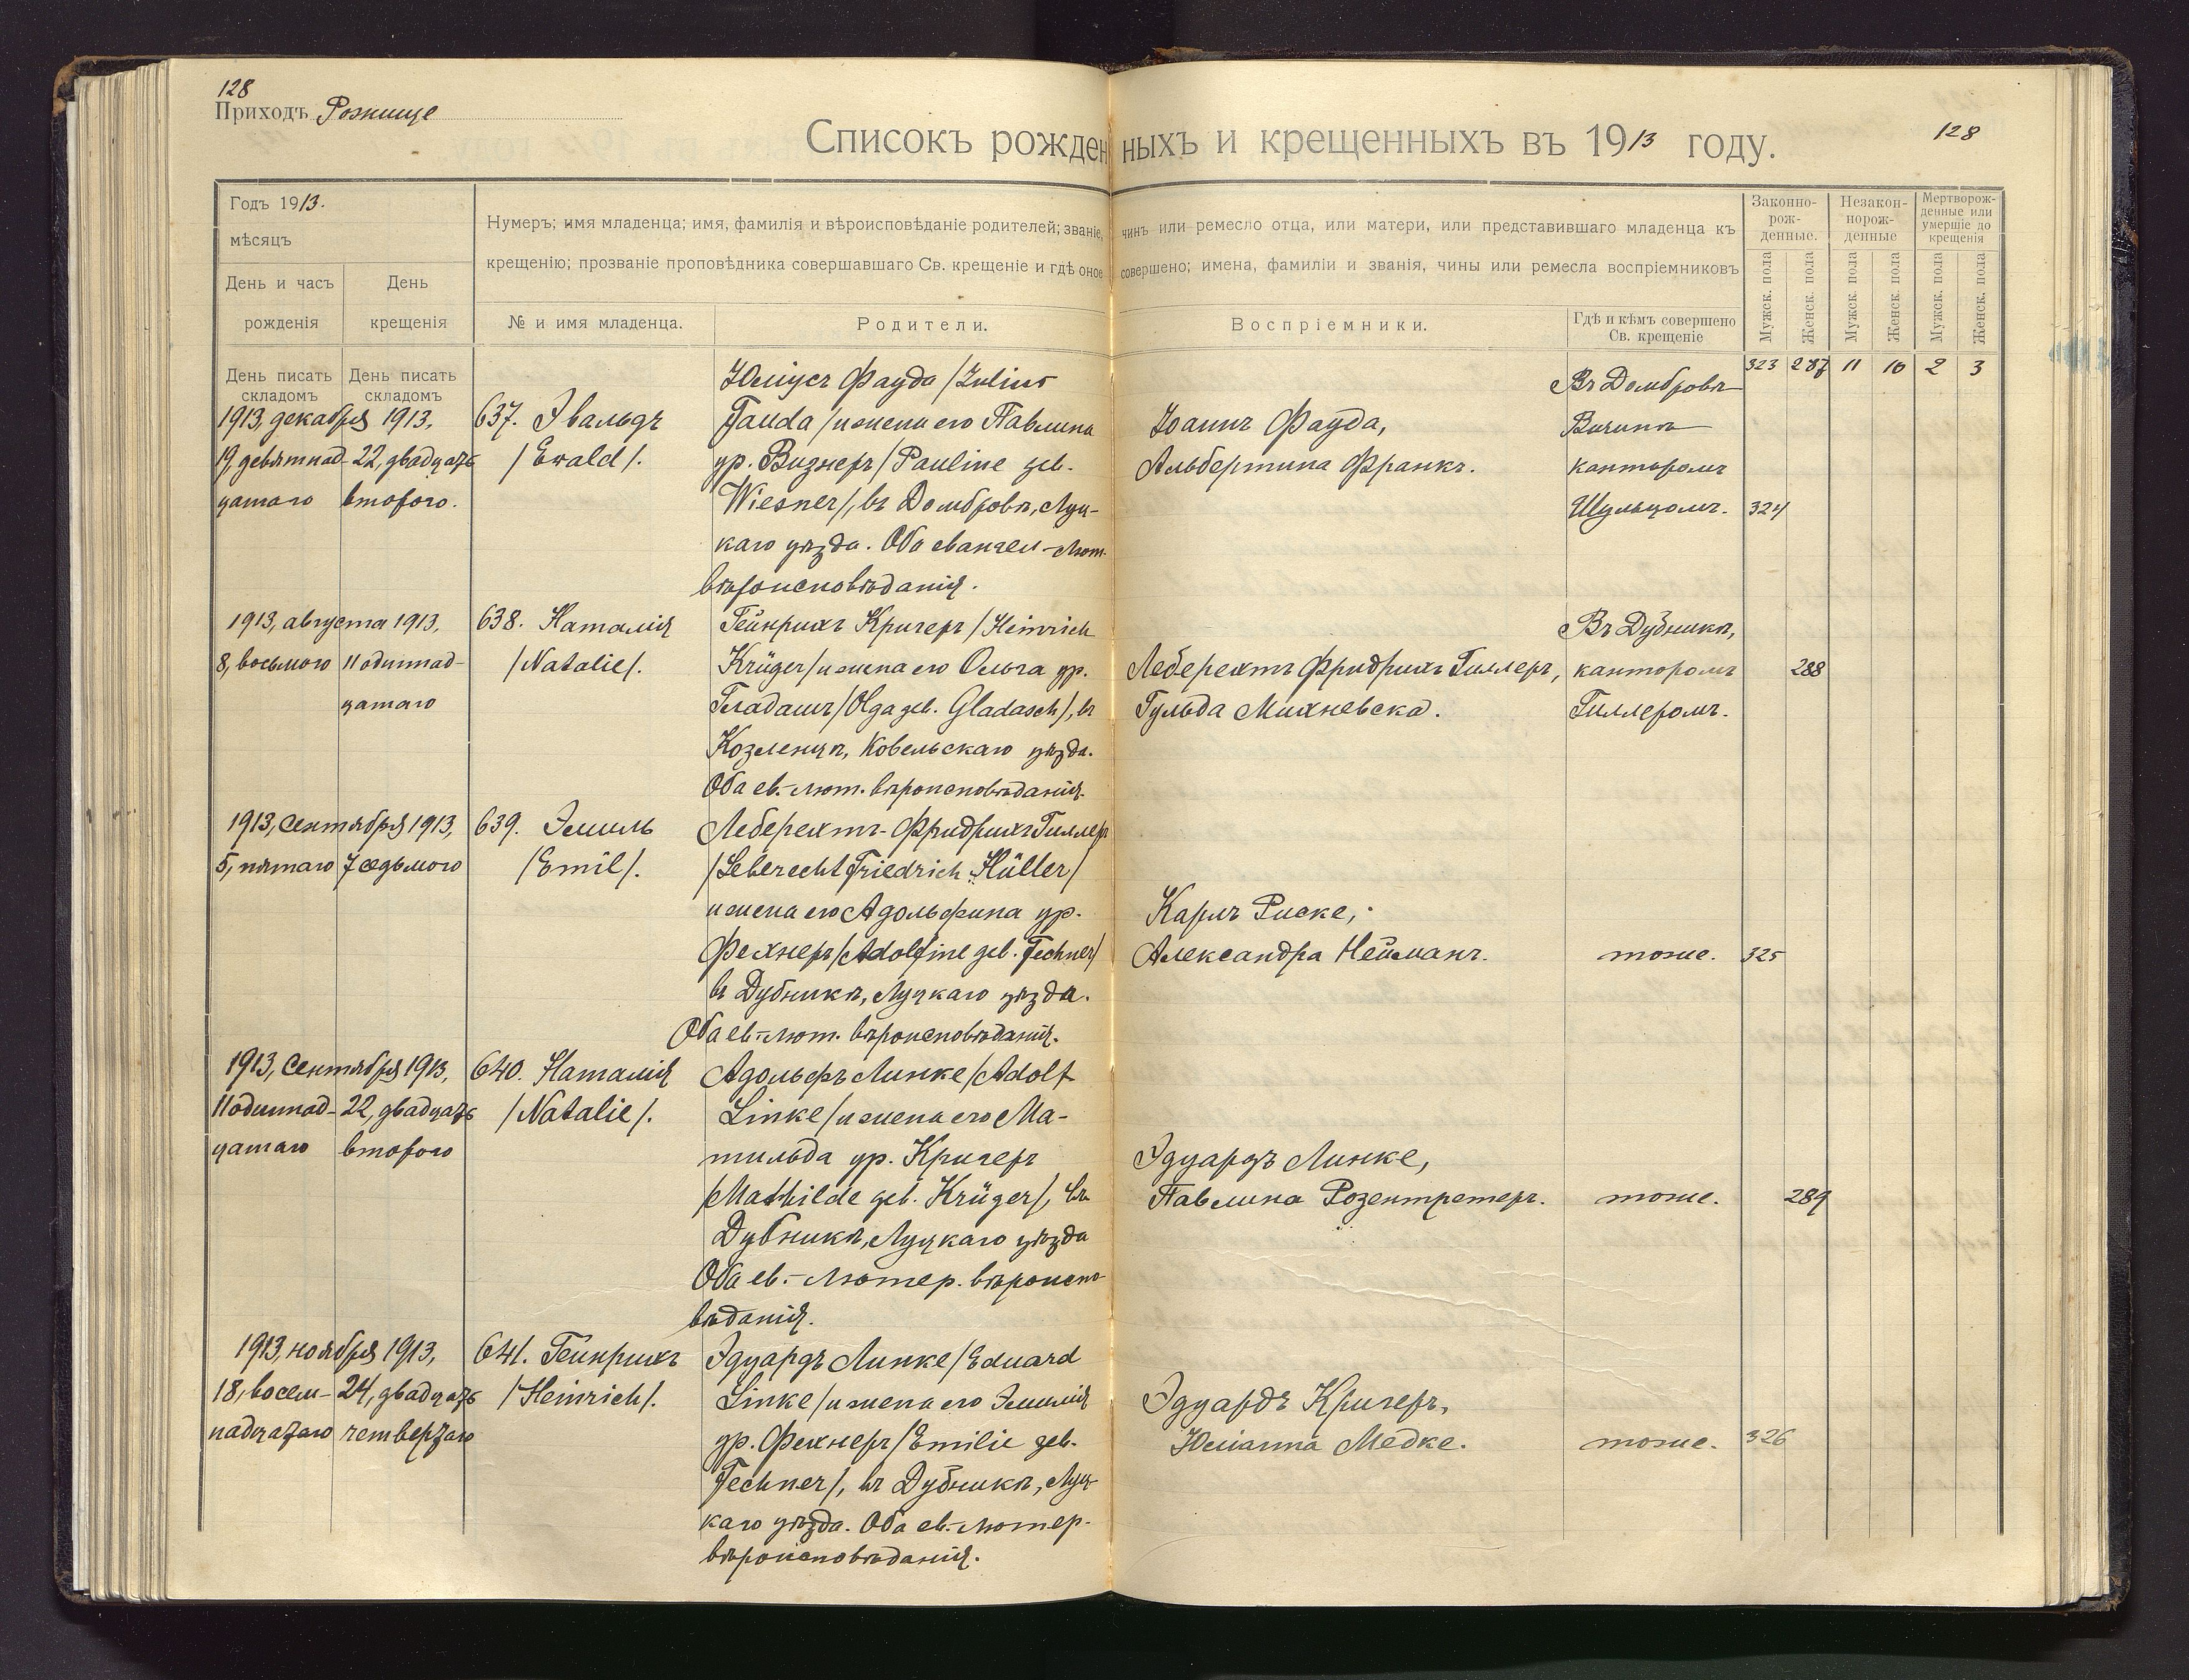 128
Приходъ Рожище
Списокъ рожденныхъ и крещенныхъ въ 1913 году.
128
Годъ 1913.
мѣсяцъ
День и часъ рожденія
День крещенія
Нумеръ; имя младенца; имя, фамилія и вѣроисповѣданіе родителей; званіе, чинъ или ремесло отца, или матери, или представившаго младенца къ
крещенію; прозваніе проповѣдника совершавшаго Св. крещеніе и гдѣ оное совершено; имена, фамиліи и званія, чины или ремесла воспріемниковъ
№ и имя младенца.
Родители.
Воспріемники.
Гдѣ и кѣмъ совершено
Св. крещеніе
Законно-
рож-
денные.
Незакон-
норож-
денные
Мертворож-
денные или
умершіе до
крещенія
Мужск. пола
Женск. пола
Мужск. пола
Женск. пола
Мужск. пола
Женск. пола
День писать
складомъ
День писать
складомъ
323 287 11 10 2 3
1913, декабря 1913,
19, девятнад- 22, двадцать
цатаго второго.
637. Эвальдъ
/Ewald/.
Юліусъ Фауда /Julius
Fauda/ и жена его Павлина
ур. Визнеръ /Pauline geb.
Wiesner/, въ Домбровѣ, Луц-
каго уѣзда. Оба евангел.-лют.
вѣроисповѣданія.
Іоаннъ Фауда,
Альбертина Франкъ.
Въ Домбровѣ
канторомъ
Шульцомъ.
324
1913, августа 1913,
8, восьмого 11 одиннад-
цатаго
638. Наталія
/Natalie/.
Гейнрихъ Кригеръ /Heinrich
Krüger/ и жена его Ольга ур.
Гладашъ /Olga geb. Gladasch/, въ
Козленцѣ, Ковельскаго уѣзда.
Оба ев.-лют. вѣроисповѣданія.
Леберехтъ Фридрихъ Гиллеръ,
Гульда Михневска.
Въ Дубникѣ,
канторомъ
Гиллеромъ.
288
1913, сентября 1913,
5, пятаго 7 седьмого
639. Эмиль
/Emil/.
Леберехтъ-Фридрихъ Гиллеръ
/Leberecht Friedrich Hüller/
и жена его Адольфина ур.
Фехнеръ /Adolfine geb. Fechner/
въ Дубникѣ, Луцкаго уѣзда.
Оба ев.-лют. вѣроисповѣданія.
Карлъ Риске,
Александра Нейманъ.
тоже.
325
1913, сентября 1913,
11 одиннад- 22, двадцать
цатаго второго
640. Наталія
/Natalie/.
Адольфъ Линке /Adolf
Linke/ и жена его Ма-
тильда ур. Кригеръ
/Mathilde geb. Krüger/, въ
Дубникѣ, Луцкаго уѣзда
Оба ев.-лютер. вѣроиспо-
вѣданія.
Эдуардъ Линке,
Павлина Розентретеръ.
тоже.
289
1913, ноября 1913,
18, восем- 24, двадцать
надцатаго четвертаго
641. Гейнрихъ
/Heinrich/.
Эдуардъ Линке /Eduard
Linke/ и жена его Эмилія
ур. Фехнеръ /Emilie geb.
Fechner/, въ Дубникѣ, Луц-
каго уѣзда. Оба ев.-лютер.
вѣроисповѣданія.
Эдуардъ Кригеръ,
Юліанна Медке.
тоже.
326